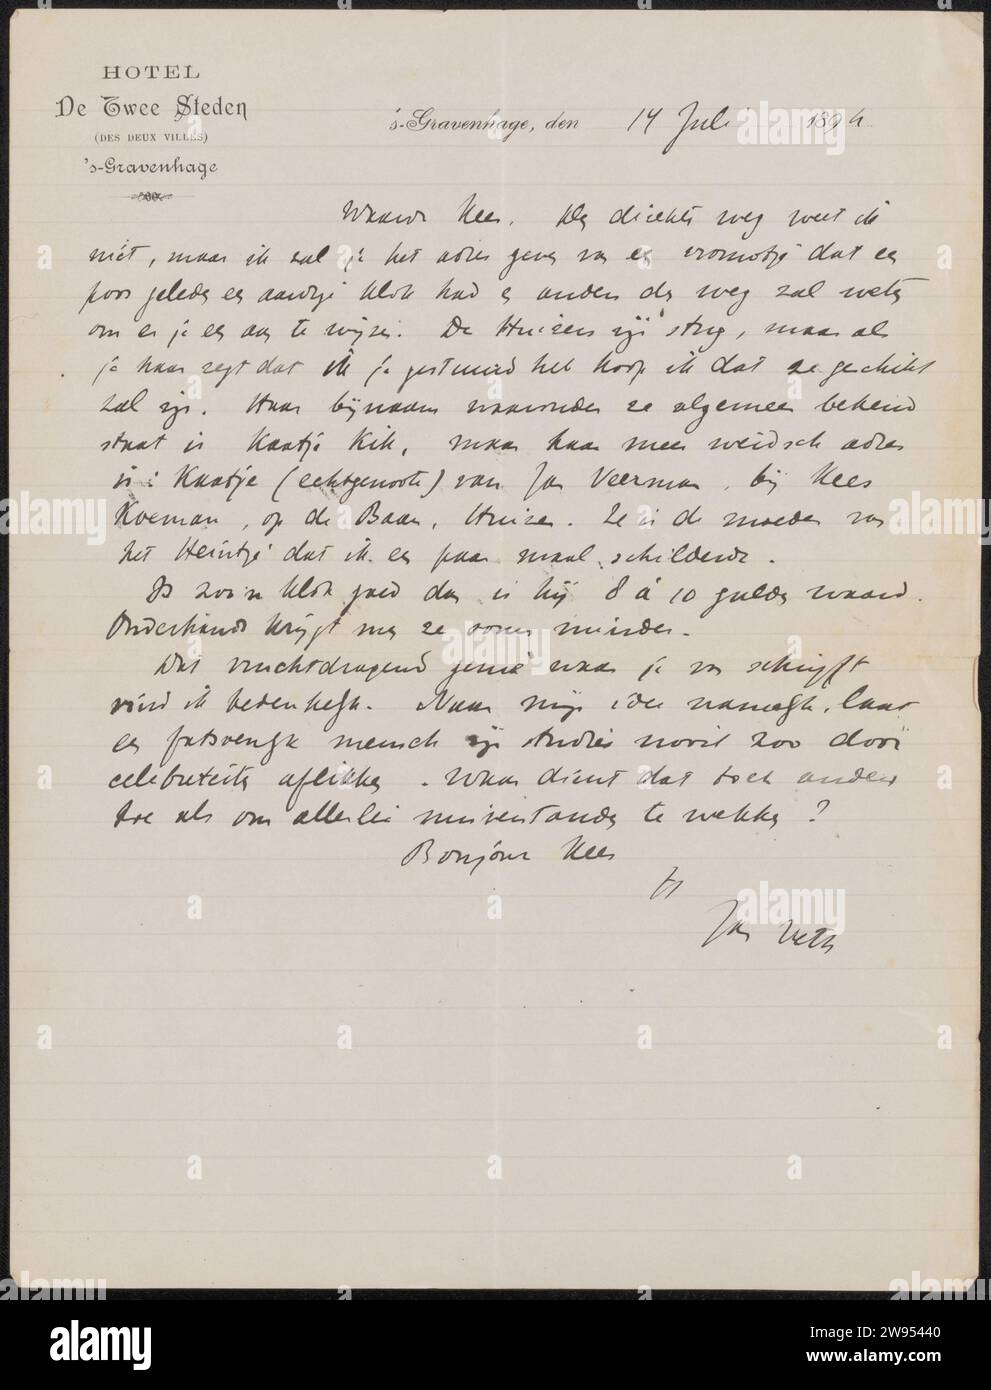 HOTEL
De Twee Steden
(DES DEUX VILLES)
's-Gravenhage
's-Gravenhage, den 14 Juli 1894
Waarde Kees. De directe weg weet ik
niet, maar ik zal je het adres geven van een vrouwtje dat een
paar geleden een aardige klok had en anders de weg zal weten
om er je een aan te wijzen. De Huizers zijn stug, maar als
je haar zegt dat ik je gestuurd heb hoop ik dat ze geschikt
zal zijn. Haar bijnaam waaronder ze algemeen bekend
staat is Kaatje Kik, maar haar meer weidsch adres
is: Kaatje (echtgenoote) van Jan Veerman, bij Kees
Koeman, op de Baan, Huizen. Ze is de moeder van
het Heintje dat ik een paar maal schilderde.
Is zoo'n klok goed dan is hij 8 à 10 gulden waard.
Onderhands krijgt men ze soms minder.
Dat vruchtdragend genie waar je van schrijft
vind ik bedenkelijk. Naar mijn idee namelijk, laat
een fatsoenlijk mensch zijn studies nooit zoo door
celebriteiten aflikken. Waar dient dat toch anders
toe als om allerlei misverstanden te wekken?
Bonjour Kees
tt
Jan Veth
alamy
Image ID: 2W95440
www.alamy.com